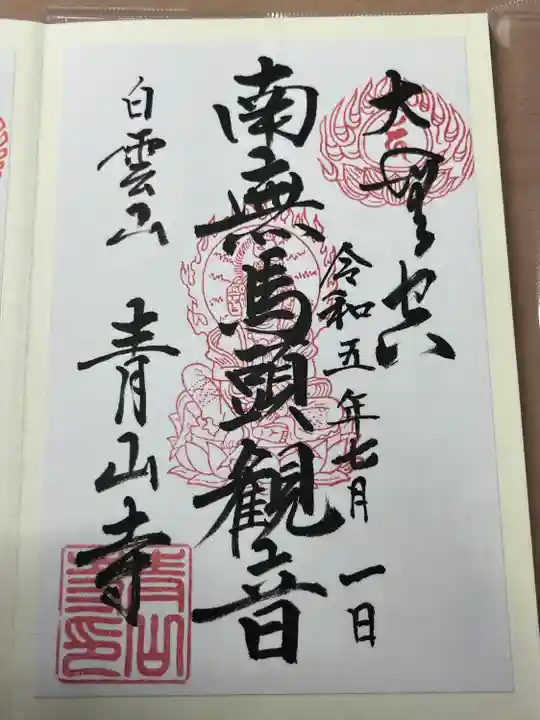 大
令和五年七月一日
南無馬頭観音
白雲山 青山寺
青山
寺印